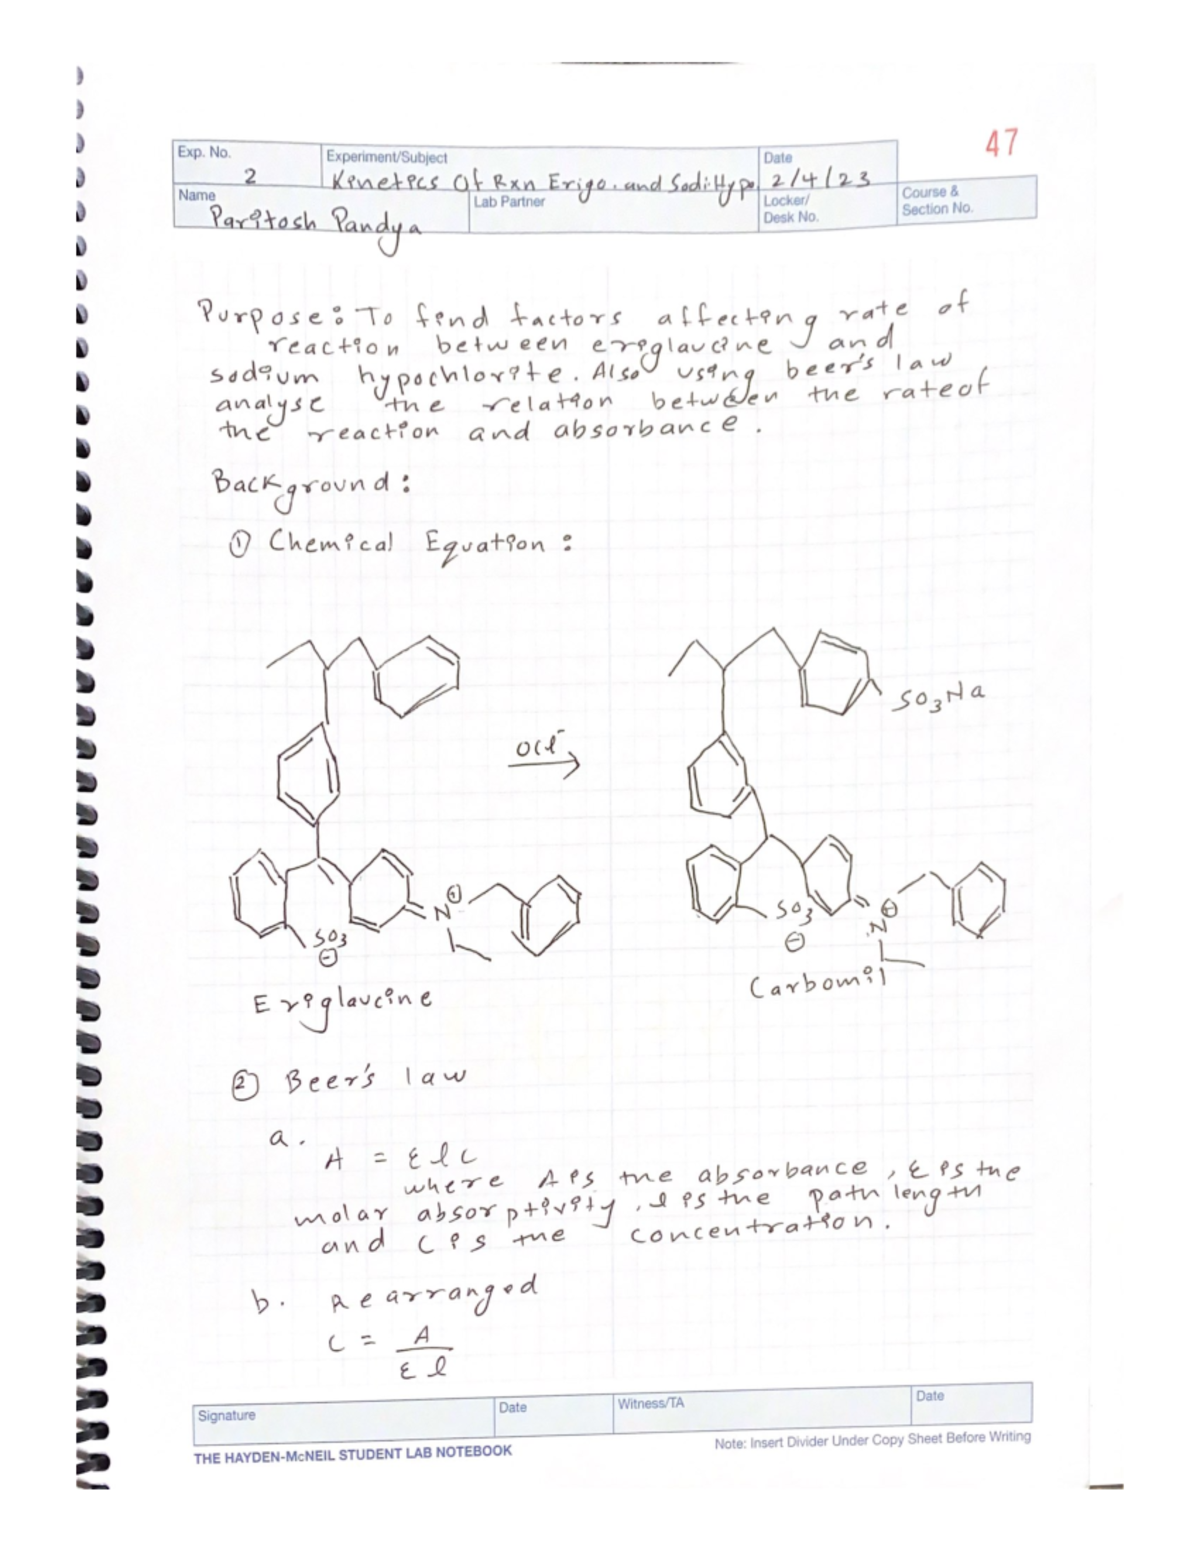 47
Exp. No.
2
Experiment/Subject
Kinetics Of Rxn Erigo. and Sodi. Hypo
Date
2/4/23
Name
Paritosh Pandya
Lab Partner
Locker/
Desk No.
Course &
Section No.
Purpose: To find factors affecting rate of
reaction between ereglaucine and
sodium hypochlorite. Also using beer's law
analyse the relation between the rate of
the reaction and absorbance.
Background:
① Chemical Equation:
SO₃Na
OCl⁻
N⊕
SO₃
⊖
SO₃
⊖
N⊕
Eriglaucine
Carbomil
② Beer's law
a.
A = εlc
where A is the absorbance, ε is the
molar absorptivity, l is the path length
and C is the concentration.
b. Rearranged
C = A
εl
Signature
Date
Witness/TA
Date
THE HAYDEN-McNEIL STUDENT LAB NOTEBOOK
Note: Insert Divider Under Copy Sheet Before Writing